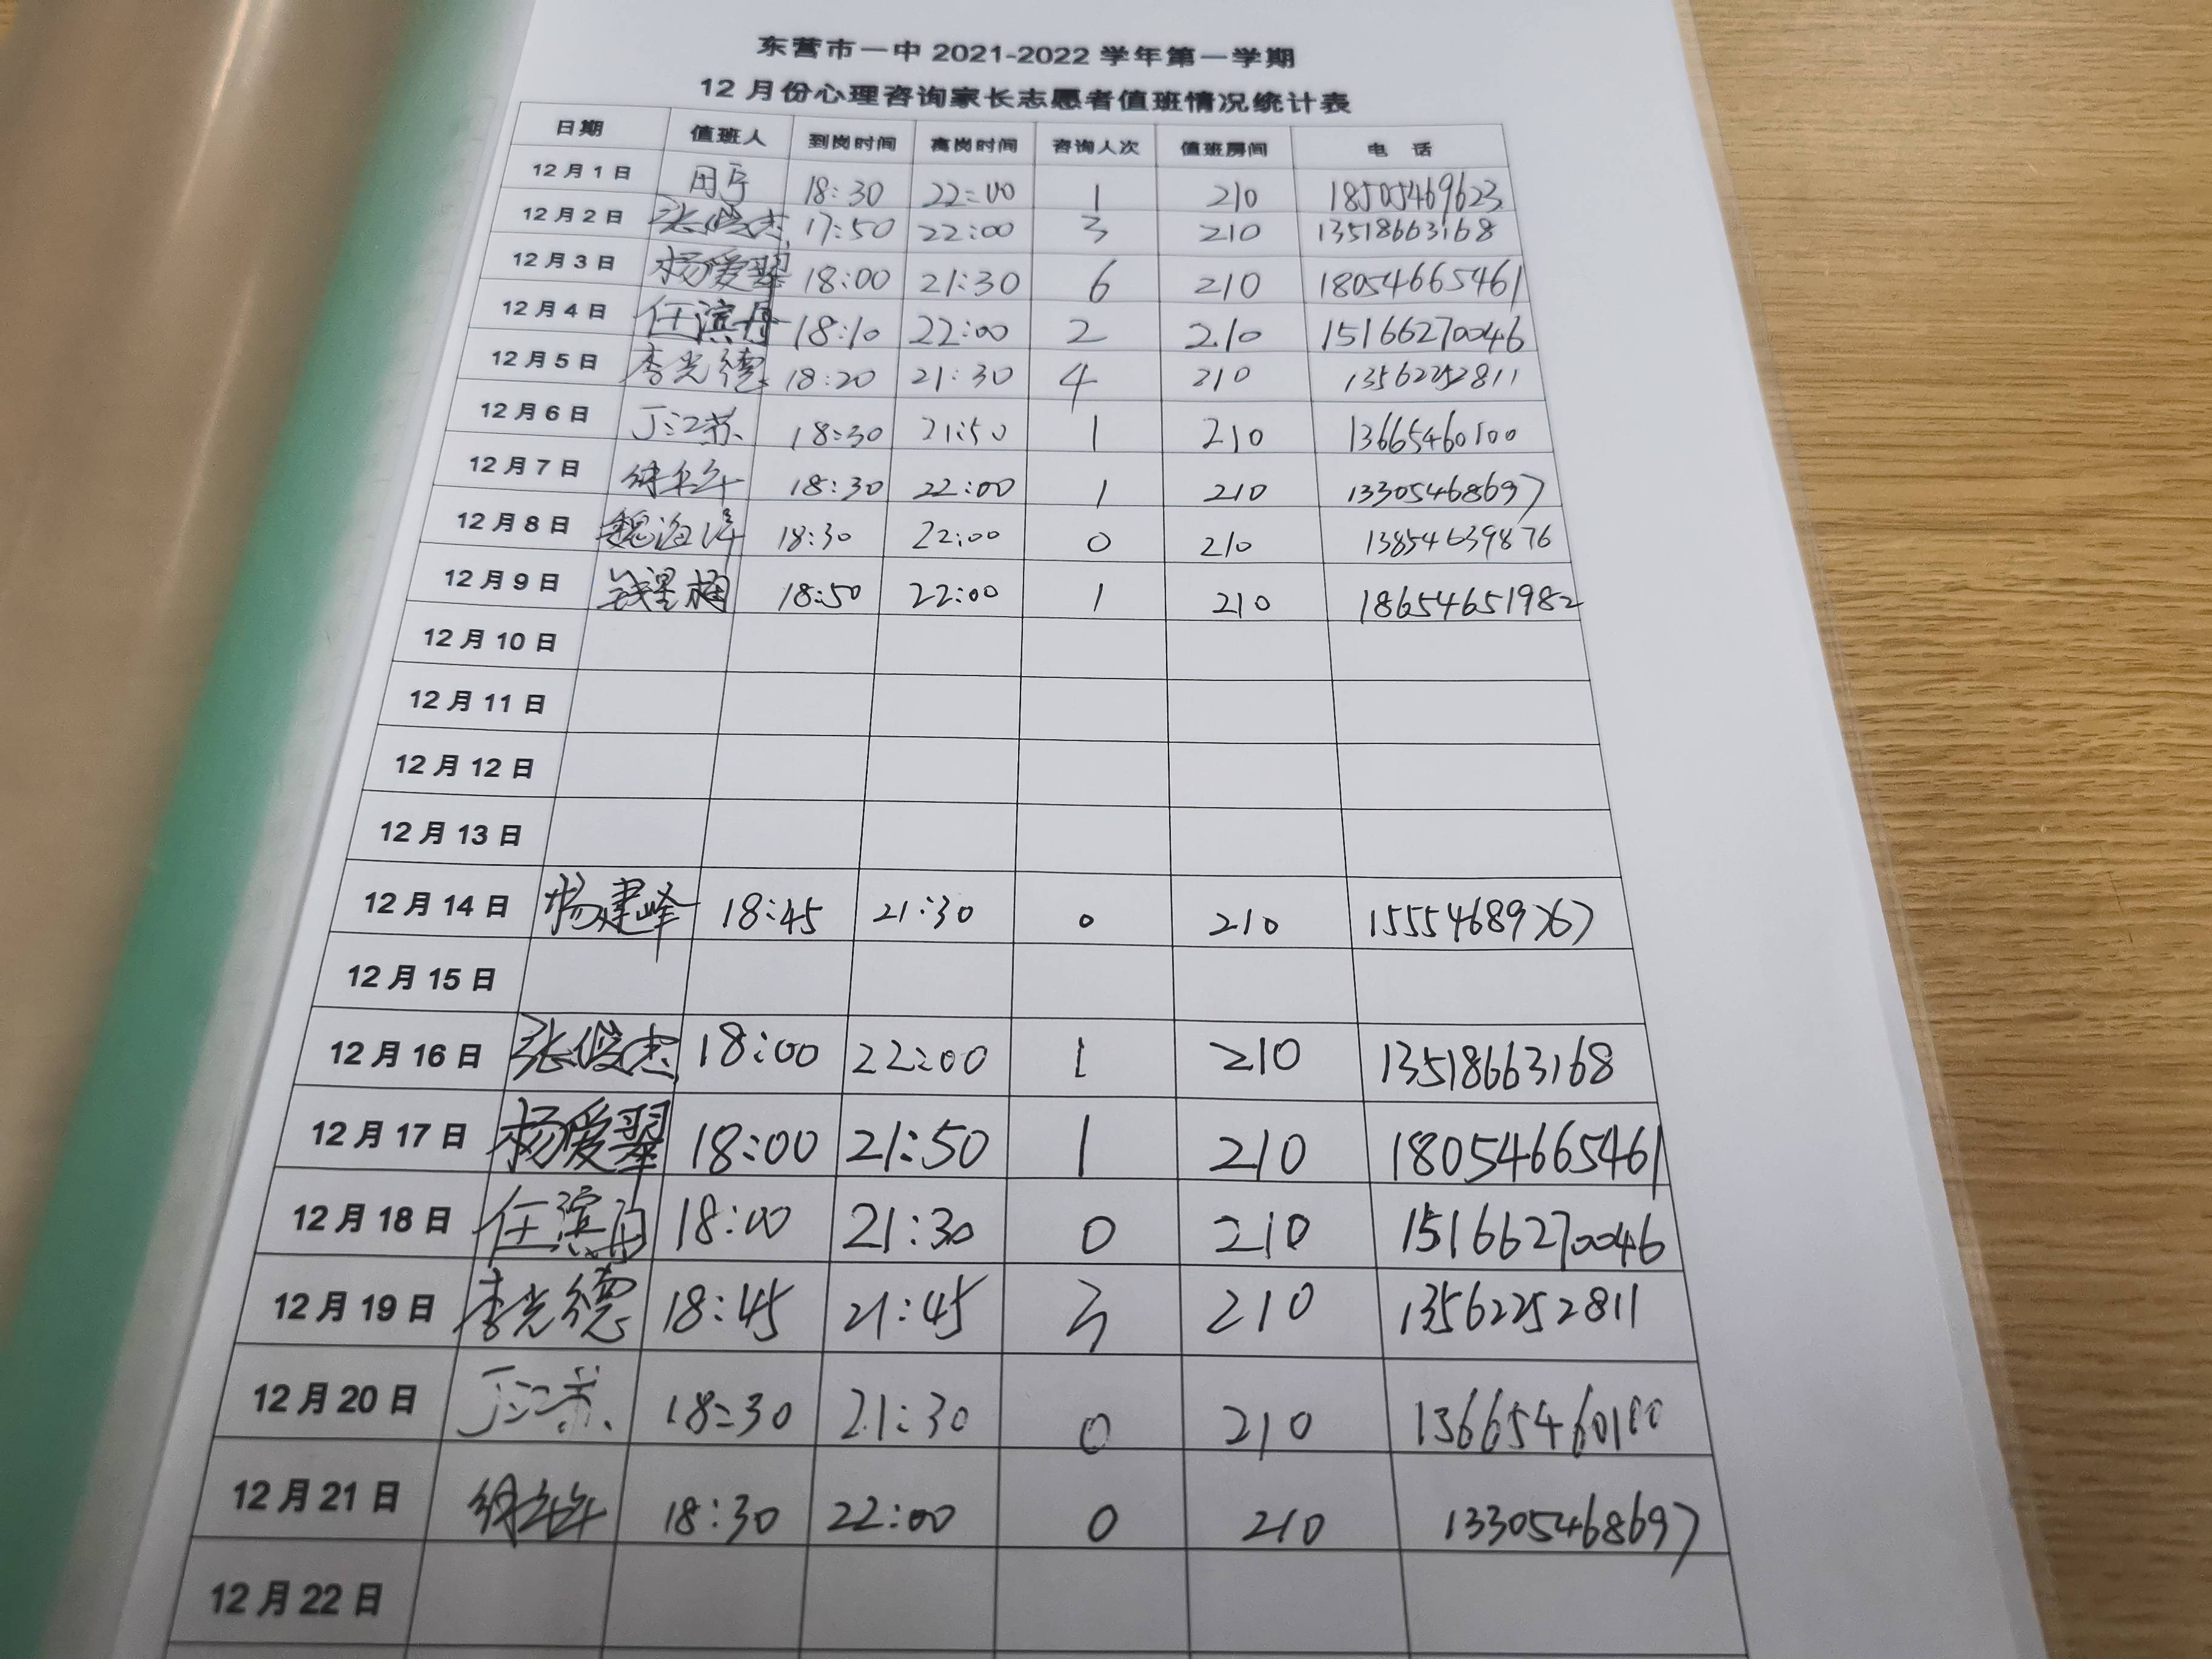 东营市一中 2021-2022 学年第一学期
12 月份心理咨询家长志愿者值班情况统计表
日期 值班人 到岗时间 离岗时间 咨询人次 值班房间 电 话
12月1日 18:30 22:00 1 210 18505469623
12月2日 张俊杰 17:50 22:00 3 210 13518663168
12月3日 杨爱翠 18:00 21:30 6 210 18054665461
12月4日 任滨丹 18:10 22:00 2 210 15166270046
12月5日 李光德 18:20 21:30 4 210 13562252811
12月6日 丁江苏 18:30 21:50 1 210 13665460100
12月7日 18:30 22:00 1 210 13305468697
12月8日 魏海洋 18:30 22:00 0 210 13854639876
12月9日 18:50 22:00 1 210 18654651982
12月10日
12月11日
12月12日
12月13日
12月14日 杨建峰 18:45 21:30 0 210 15554689767
12月15日
12月16日 张俊杰 18:00 22:00 1 210 13518663168
12月17日 杨爱翠 18:00 21:50 1 210 18054665461
12月18日 任滨丹 18:00 21:30 0 210 15166270046
12月19日 李光德 18:45 21:45 3 210 13562252811
12月20日 丁江苏 18:30 21:30 0 210 13665460100
12月21日 18:30 22:00 0 210 13305468697
12月22日